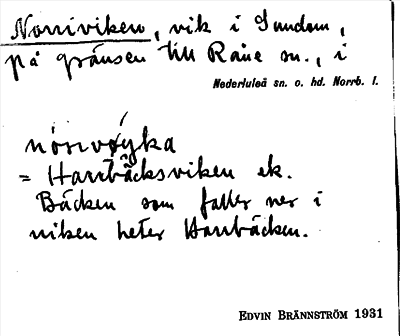 Norriviken, vik i Sundom,
på gränsen till Råne sn., i
Nederluleå sn. o. hd. Norrb. l.
= Harrbäcksviken ek.
Bäcken som faller ner i
viken heter Harrbäcken.
EDVIN BRÄNNSTRÖM 1931